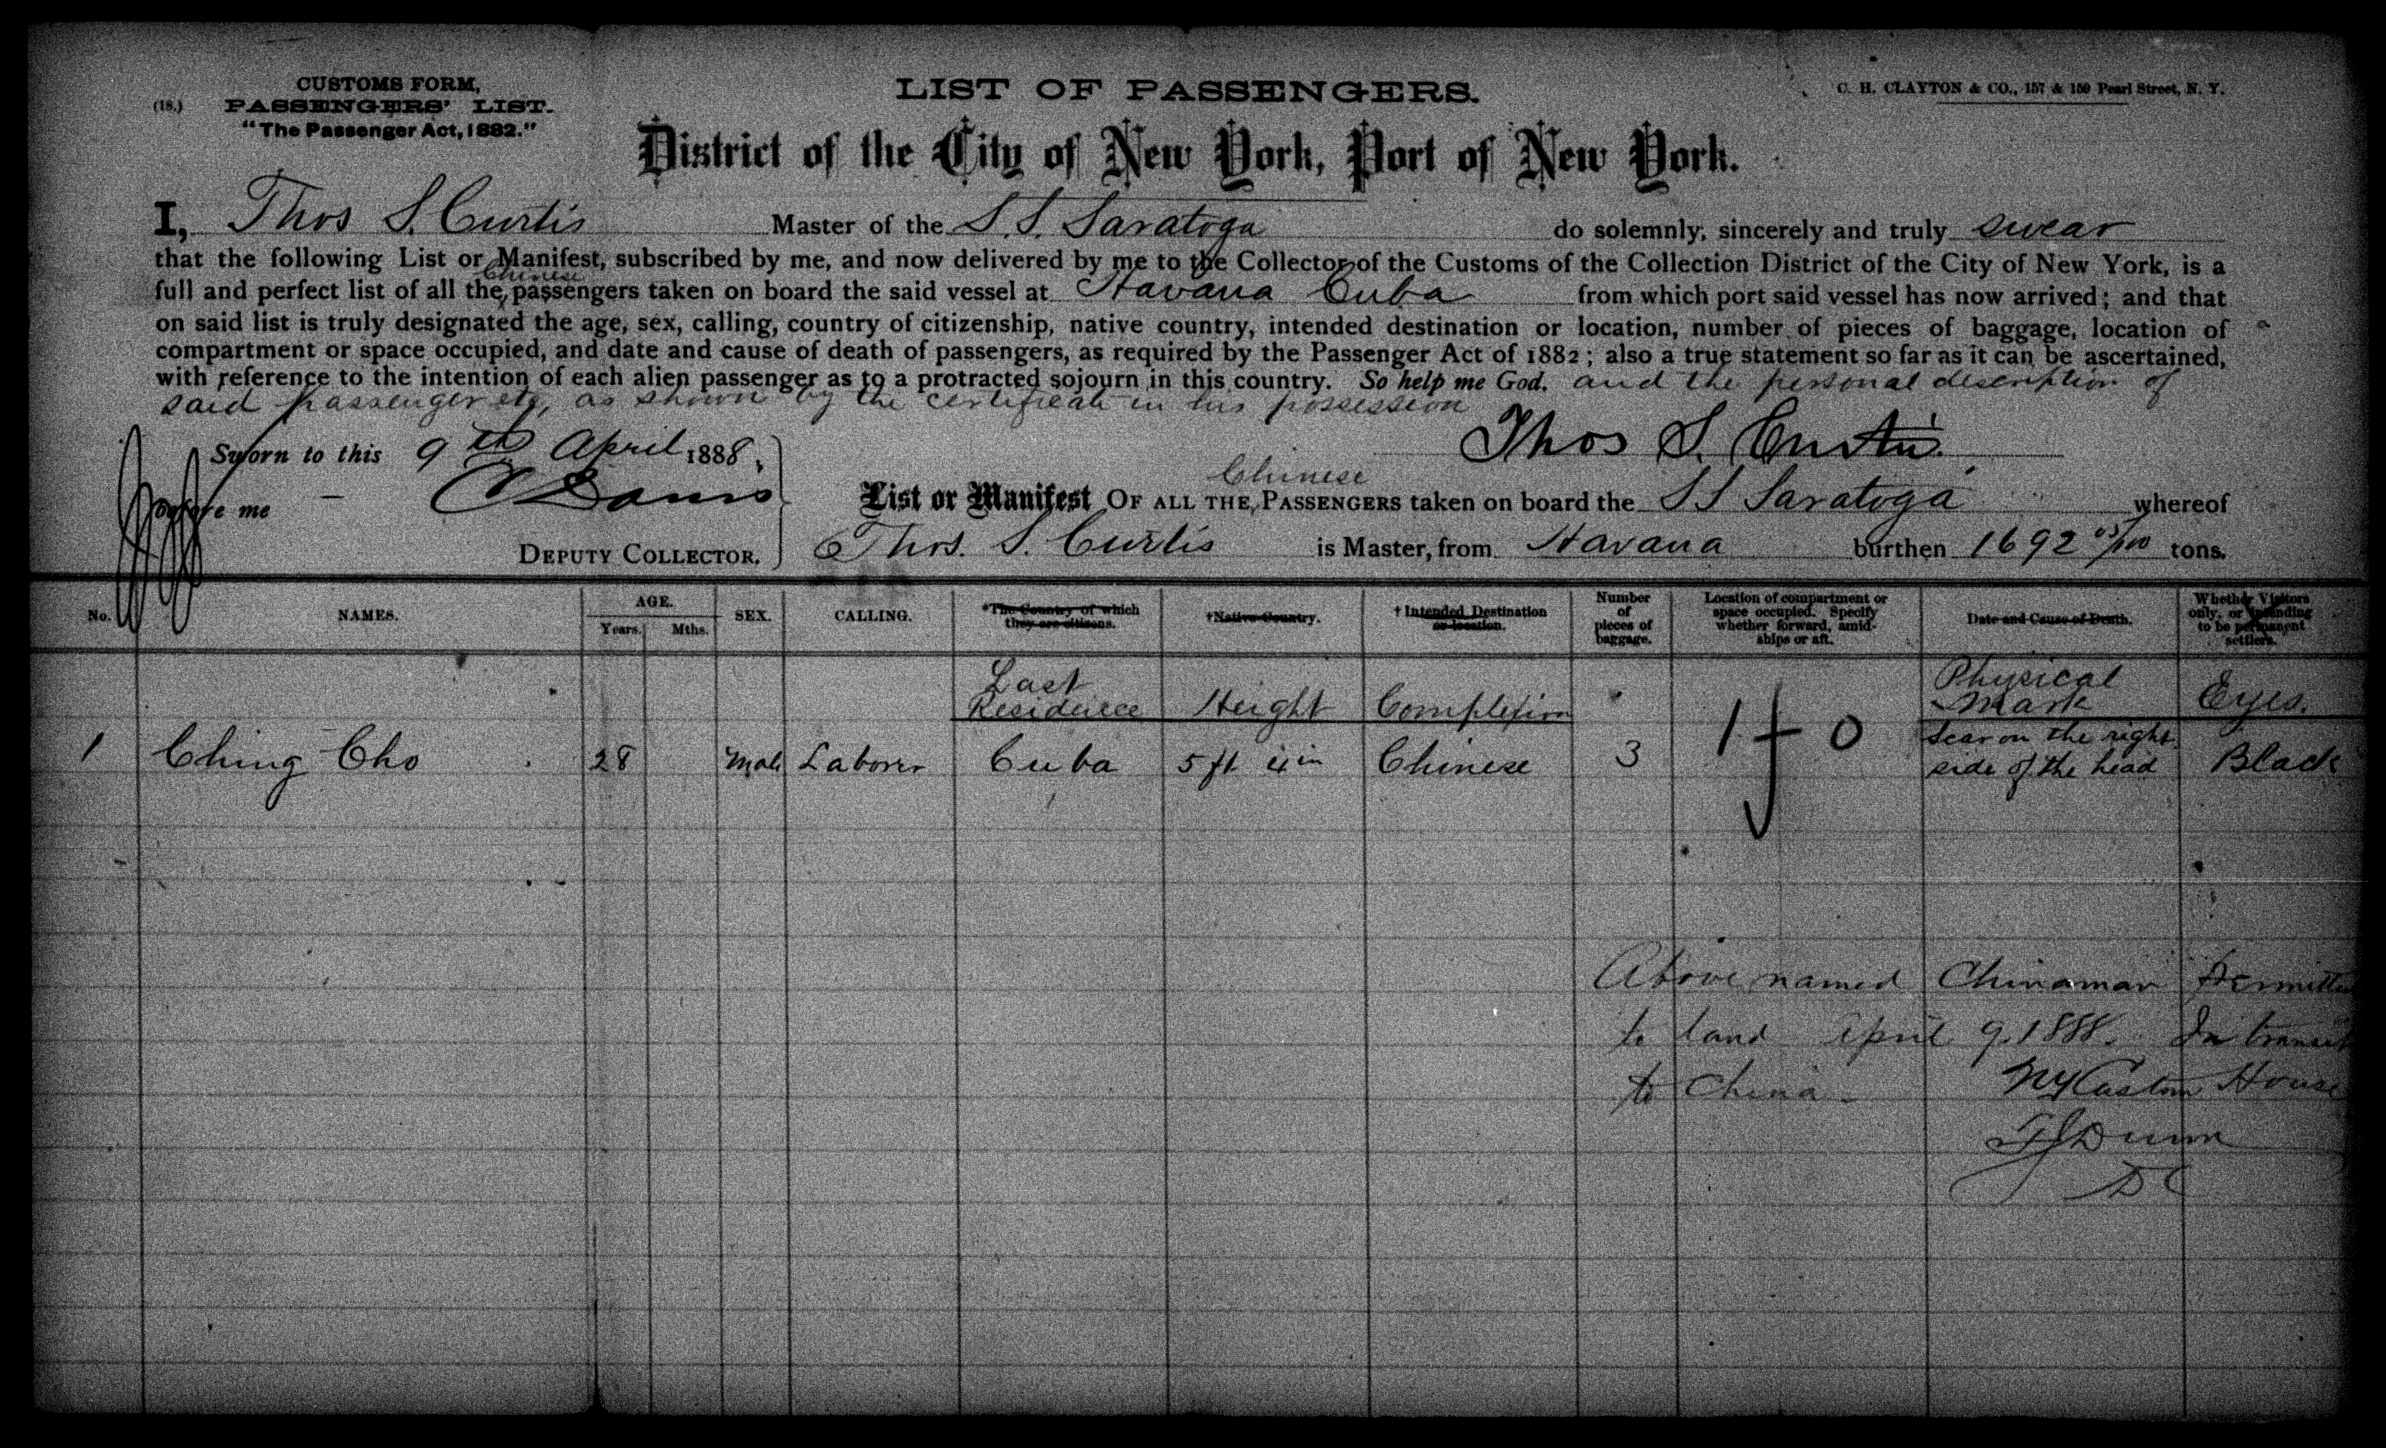 CUSTOMS FORM,
(18.) PASSENGERS' LIST.
"The Passenger Act, 1882."
LIST OF PASSENGERS.
C. H. CLAYTON & CO., 157 & 159 Pearl Street, N. Y.
District of the City of New York, Port of New York.
I, Thos S. Curtis Master of the S.S. Saratoga do solemnly, sincerely and truly swear
that the following List or Manifest, subscribed by me, and now delivered by me to the Collector of the Customs of the Collection District of the City of New York, is a
Chinese
full and perfect list of all the passengers taken on board the said vessel at Havana Cuba from which port said vessel has now arrived; and that
on said list is truly designated the age, sex, calling, country of citizenship, native country, intended destination or location, number of pieces of baggage, location of
compartment or space occupied, and date and cause of death of passengers, as required by the Passenger Act of 1882; also a true statement so far as it can be ascertained,
with reference to the intention of each alien passenger as to a protracted sojourn in this country. So help me God. and the personal description of
said passenger etc, as shown by the certificate in his possession
Thos S. Curtis
Sworn to this 9th April 1888,
before me
DEPUTY COLLECTOR.
Chinese
List or Manifest OF ALL THE PASSENGERS taken on board the S S Saratoga whereof
Thos. S. Curtis is Master, from Havana burthen 1692 05/100 tons.
No. NAMES. AGE. Years. Mths. SEX. CALLING. *The Country of which they are citizens. †Native Country. †Intended Destination or location. Number of pieces of baggage. Location of compartment or space occupied. Specify whether forward, amidships or aft. Date and Cause of Death. Whether Visitors only, or intending to be permanent settlers.
Last Residence Height Complexion Physical Mark Eyes.
1 Ching Cho 28 Male Laborer Cuba 5 ft 4 in Chinese 3 Scar on the right side of the head Black
Above named Chinaman Permitted
to land April 9. 1888. In transit
to China - NY Custom House
Dunn
DC